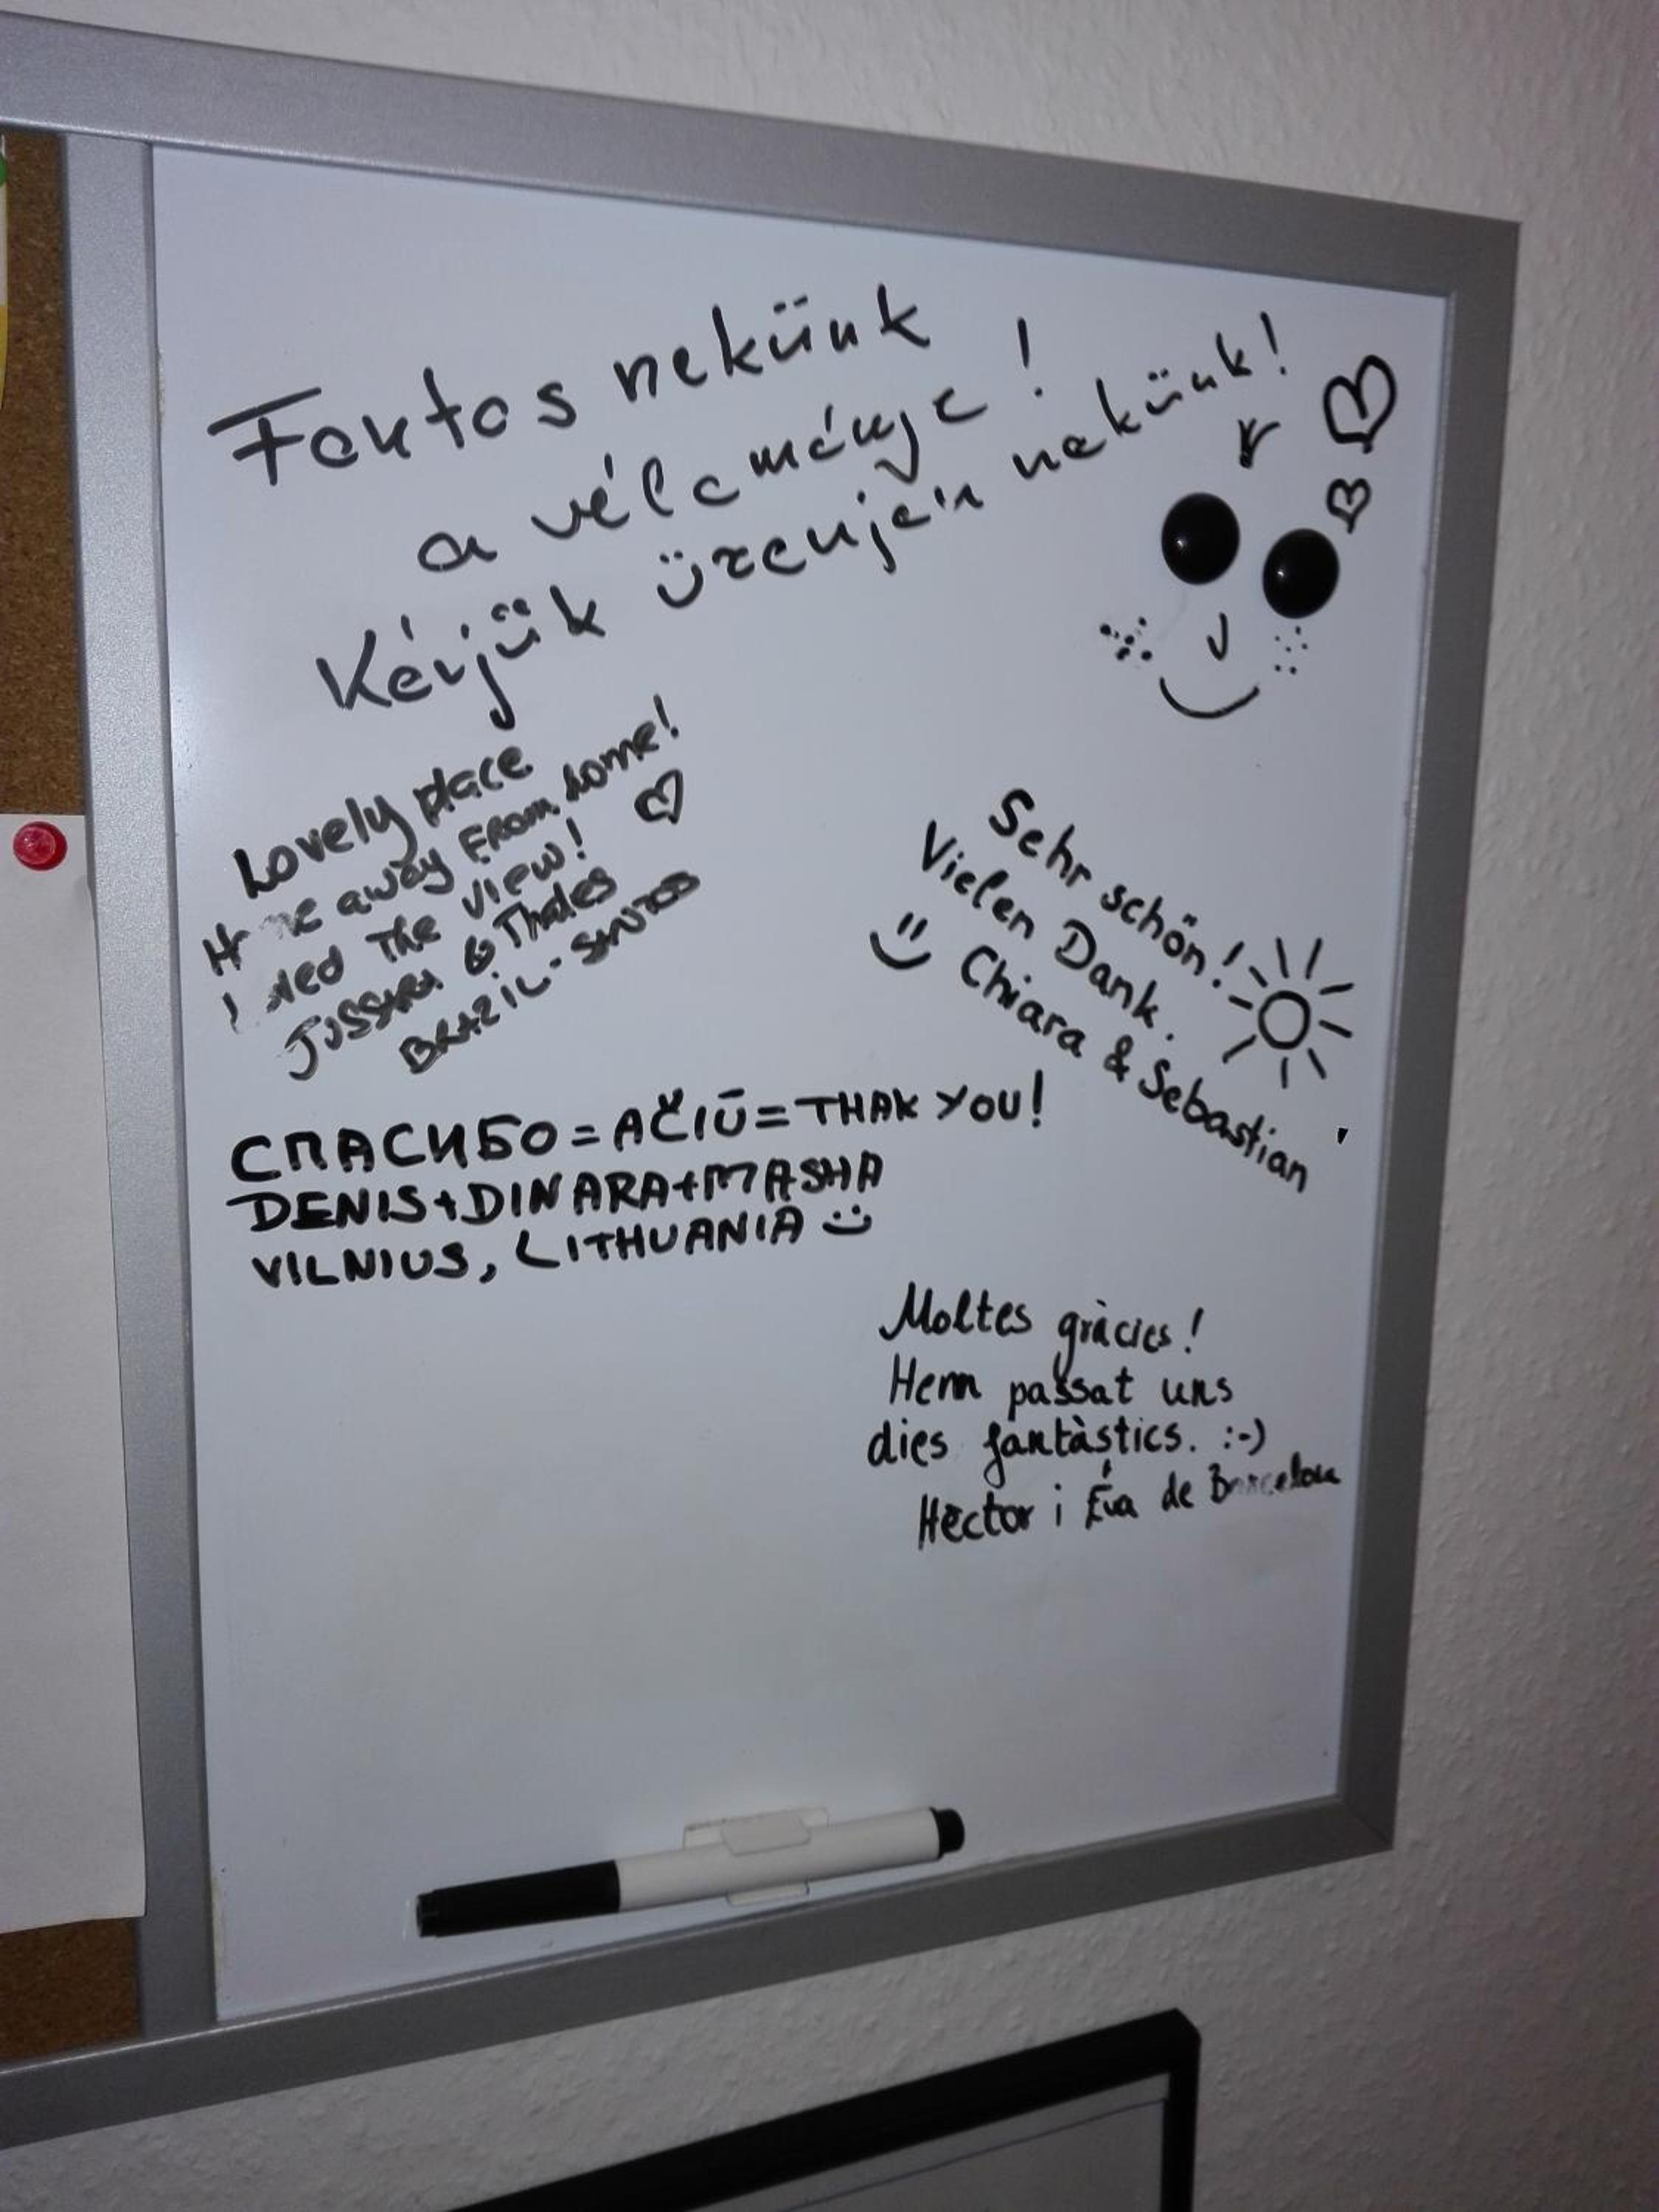 Fontos nekünk
a véleménye!
Kérjük üzenjen nekünk!
Lovely place
away From home!
the view!
JUSSARA & Thales
BRAZIL-SANTOS
Sehr schön!
Vielen Dank.
Chiara & Sebastian
СПАСИБО = AČIŪ = THAK YOU!
DENIS+DINARA+MASHA
VILNIUS, LITHUANIA
Moltes gràcies!
Hem passat uns
dies fantàstics. :-)
Hèctor i Èva de Barcelona